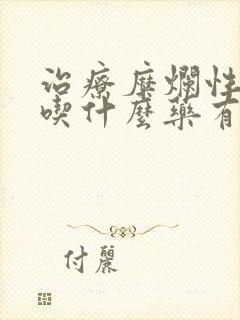 治療糜爛性
喫什麼藥有
付麗